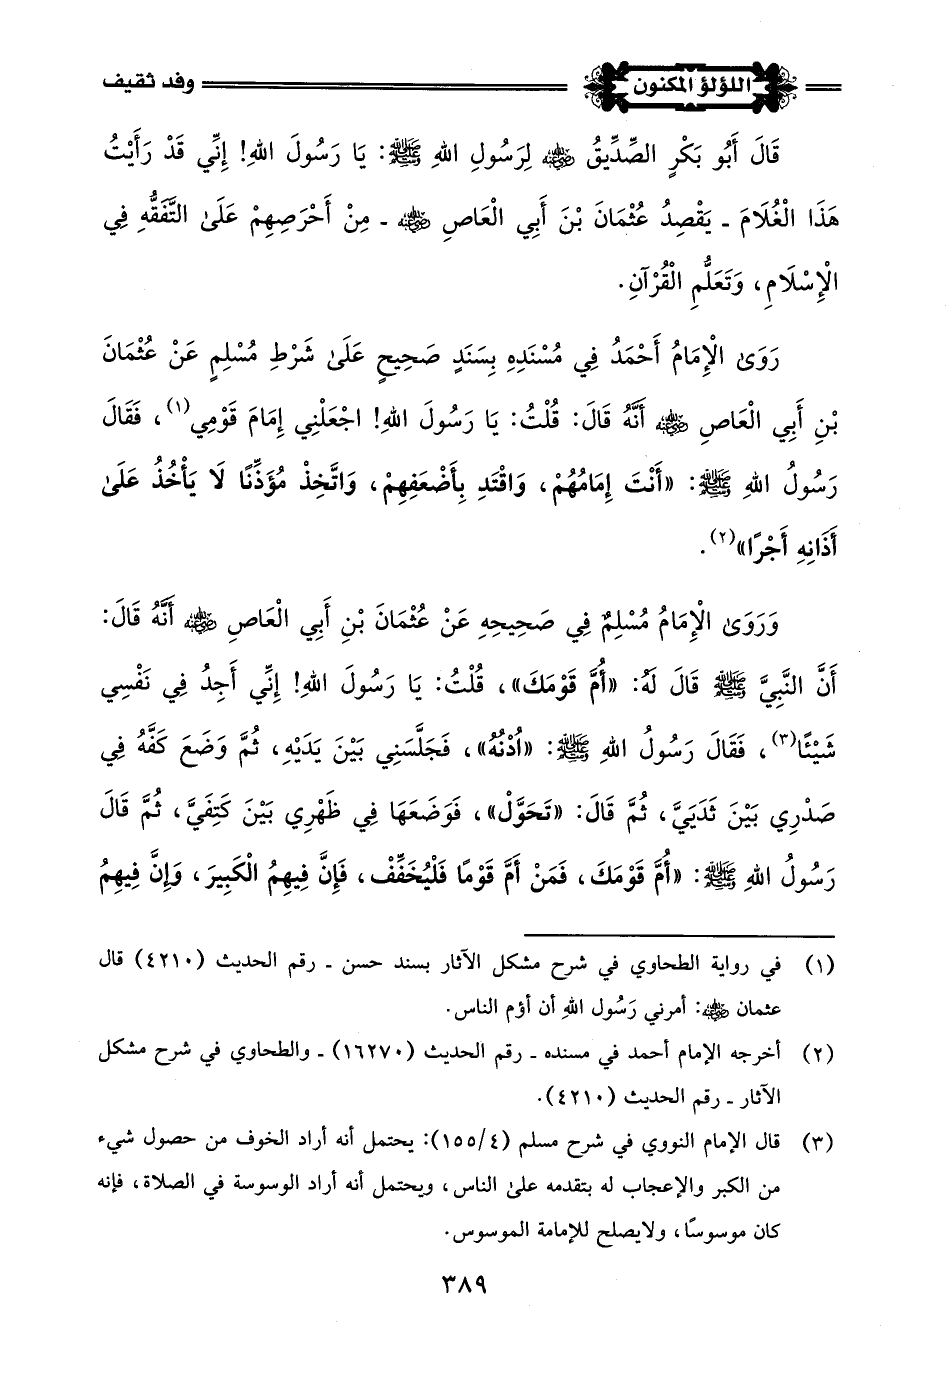 اللؤلؤ المكنون وفد ثقيف
قَالَ أَبُو بَكْرٍ الصِّدِّيقُ رضي الله عنه لِرَسُولِ اللهِ ﷺ: يَا رَسُولَ اللهِ! إِنِّي قَدْ رَأَيْتُ
هَذَا الْغُلَامَ ـ يَقْصِدُ عُثْمَانَ بْنَ أَبِي الْعَاصِ رضي الله عنه ـ مِنْ أَحْرَصِهِمْ عَلَىٰ التَّفَقُّهِ فِي
الْإِسْلَامِ، وَتَعَلُّمِ الْقُرْآنِ.
رَوَىٰ الْإِمَامُ أَحْمَدُ فِي مُسْنَدِهِ بِسَنَدٍ صَحِيحٍ عَلَىٰ شَرْطِ مُسْلِمٍ عَنْ عُثْمَانَ
بْنِ أَبِي الْعَاصِ رضي الله عنه أَنَّهُ قَالَ: قُلْتُ: يَا رَسُولَ اللهِ! اجْعَلْنِي إِمَامَ قَوْمِي(١)، فَقَالَ
رَسُولُ اللهِ ﷺ: «أَنْتَ إِمَامُهُمْ، وَاقْتَدِ بِأَضْعَفِهِمْ، وَاتَّخِذْ مُؤَذِّنًا لَا يَأْخُذُ عَلَىٰ
أَذَانِهِ أَجْرًا»(٢).
وَرَوَىٰ الْإِمَامُ مُسْلِمٌ فِي صَحِيحِهِ عَنْ عُثْمَانَ بْنِ أَبِي الْعَاصِ رضي الله عنه أَنَّهُ قَالَ:
أَنَّ النَّبِيَّ ﷺ قَالَ لَهُ: «أُمَّ قَوْمَكَ»، قُلْتُ: يَا رَسُولَ اللهِ! إِنِّي أَجِدُ فِي نَفْسِي
شَيْئًا(٣)، فَقَالَ رَسُولُ اللهِ ﷺ: «اُدْنُهْ»، فَجَلَّسَنِي بَيْنَ يَدَيْهِ، ثُمَّ وَضَعَ كَفَّهُ فِي
صَدْرِي بَيْنَ ثَدَيَيَّ، ثُمَّ قَالَ: «تَحَوَّلْ»، فَوَضَعَهَا فِي ظَهْرِي بَيْنَ كَتِفَيَّ، ثُمَّ قَالَ
رَسُولُ اللهِ ﷺ: «أُمَّ قَوْمَكَ، فَمَنْ أَمَّ قَوْمًا فَلْيُخَفِّفْ، فَإِنَّ فِيهِمُ الْكَبِيرَ، وَإِنَّ فِيهِمُ
(١) في رواية الطحاوي في شرح مشكل الآثار بسند حسن ـ رقم الحديث (٤٢١٠) قال
عثمان رضي الله عنه: أمرني رَسُول اللهِ أن أؤم الناس.
(٢) أخرجه الإمام أحمد في مسنده ـ رقم الحديث (١٦٢٧٠) ـ والطحاوي في شرح مشكل
الآثار ـ رقم الحديث (٤٢١٠).
(٣) قال الإمام النووي في شرح مسلم (١٥٥/٤): يحتمل أنه أراد الخوف من حصول شيء
من الكبر والإعجاب له بتقدمه علىٰ الناس، ويحتمل أنه أراد الوسوسة في الصلاة، فإنه
كان موسوسًا، ولايصلح للإمامة الموسوس.
٣٨٩